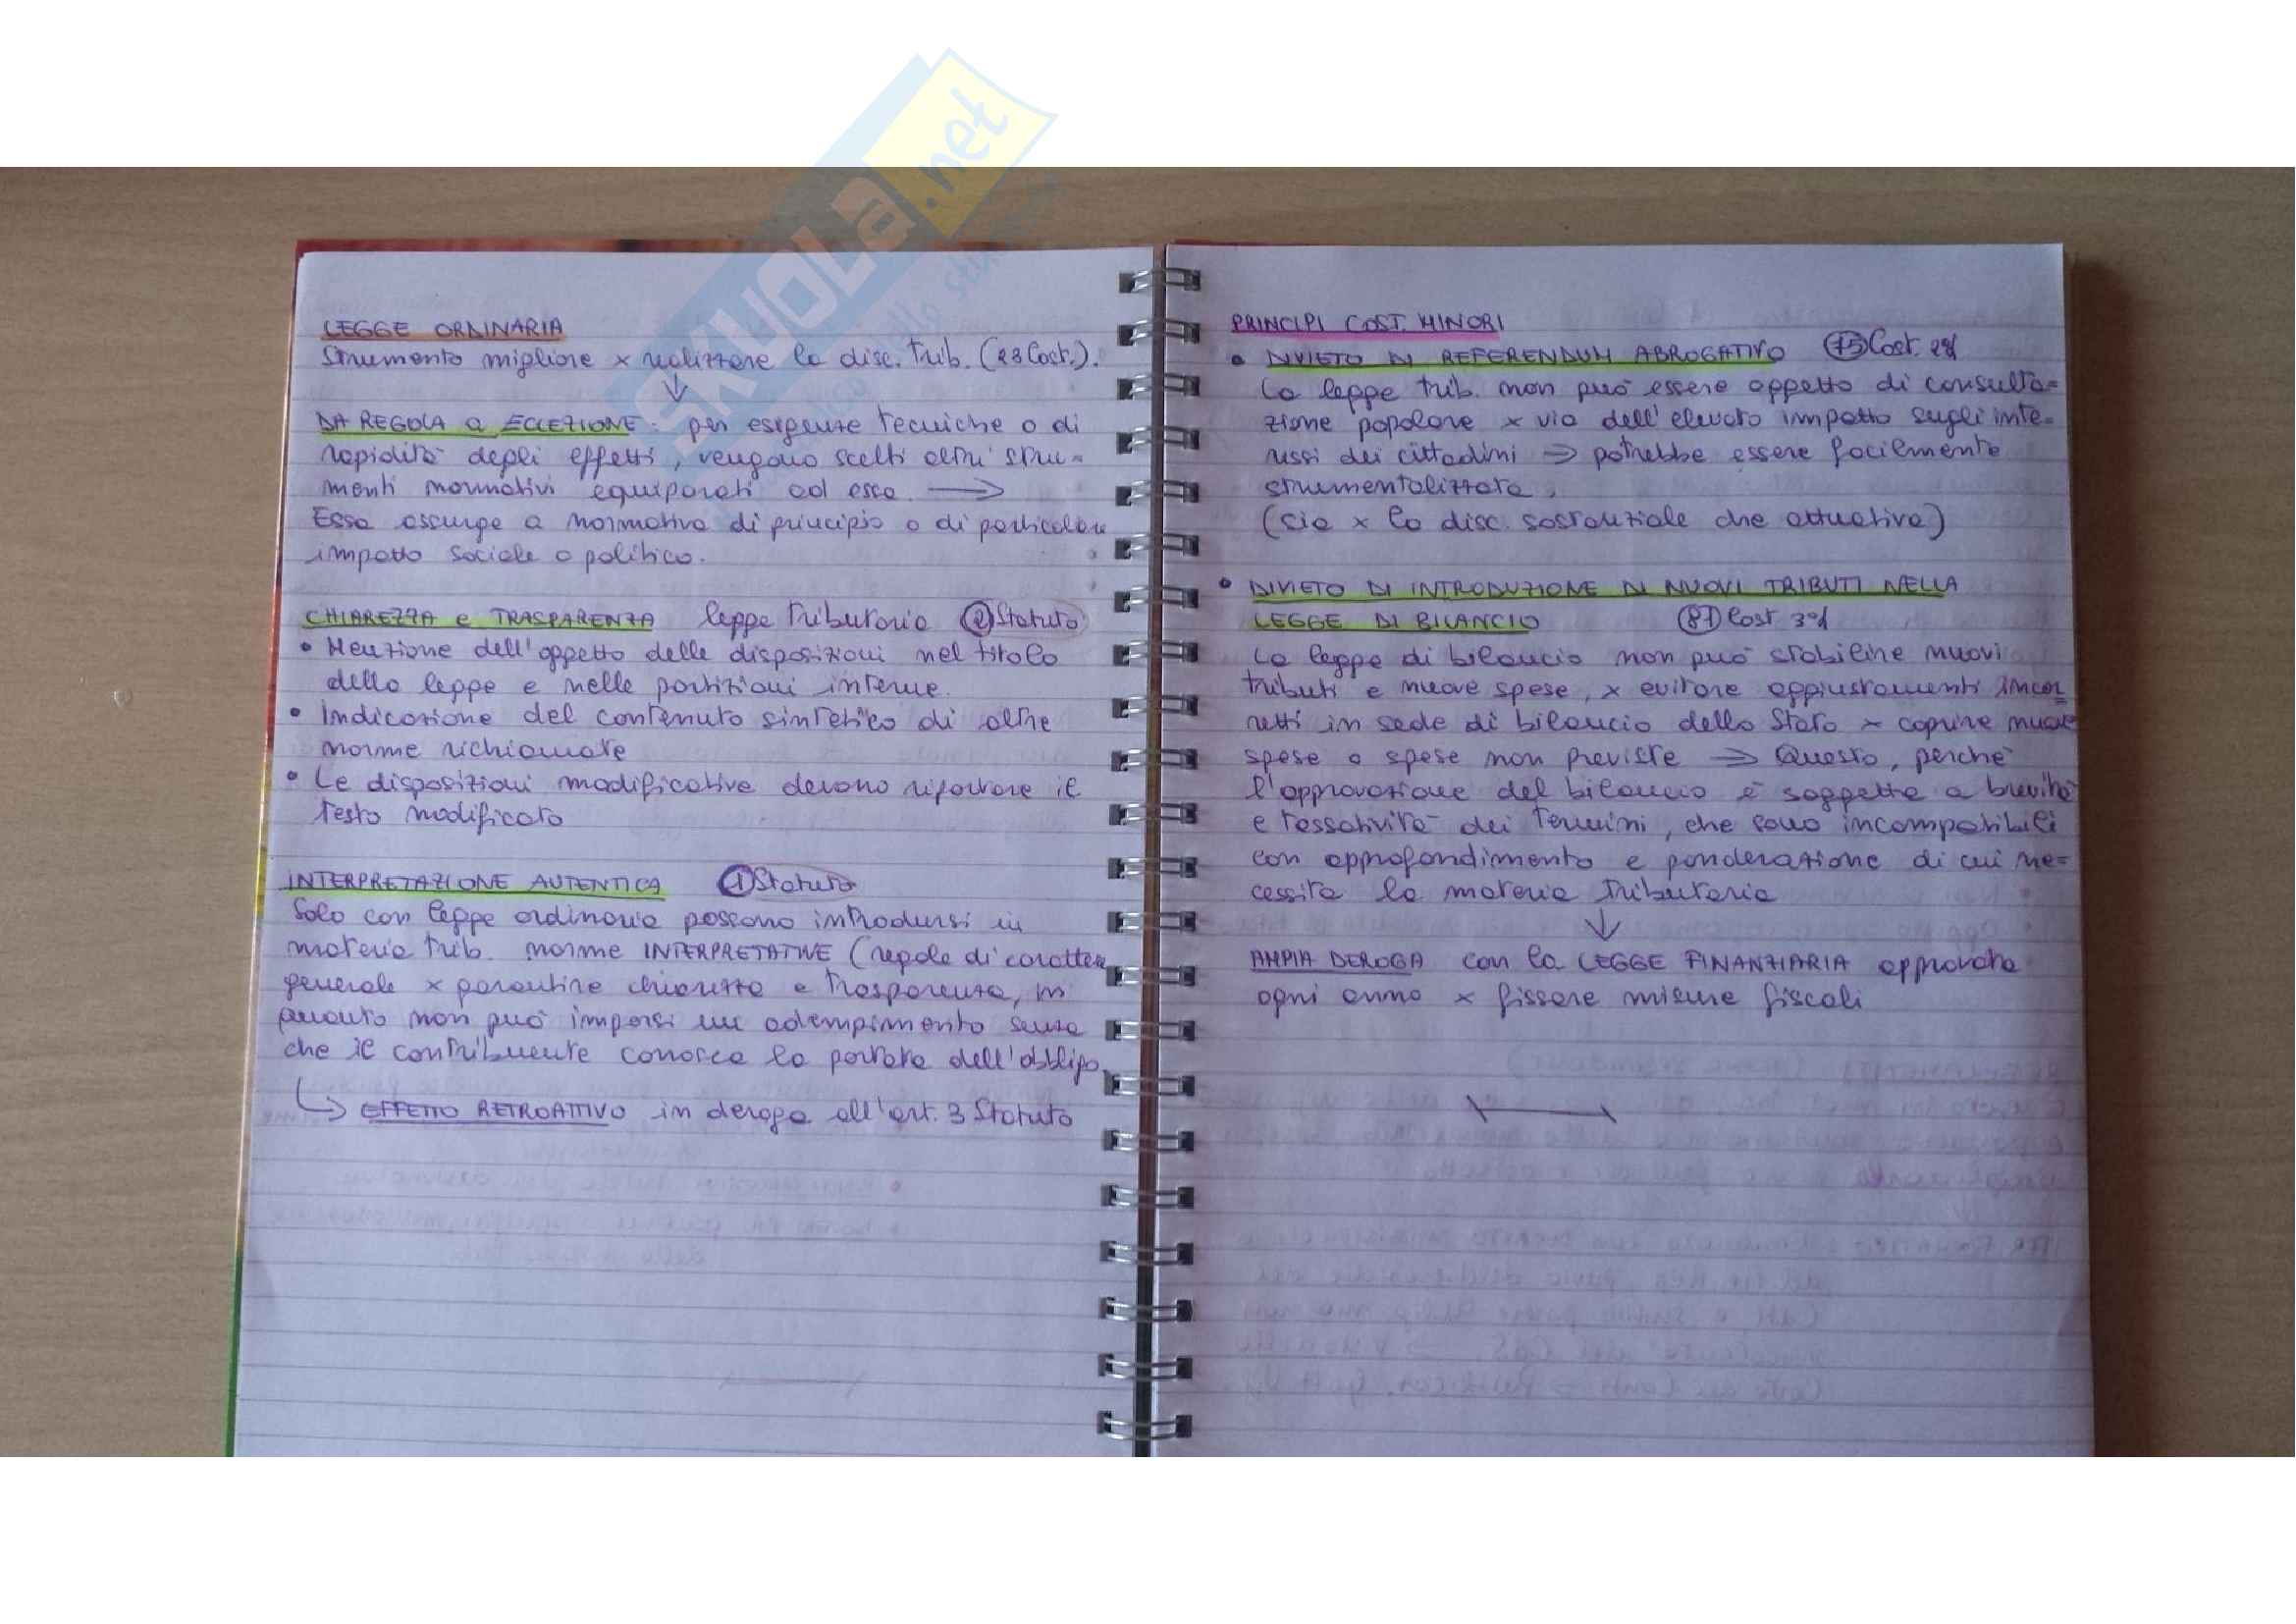 SKUOLA.net
LEGGE ORDINARIA
Strumento migliore x realizzare la disc. trib. (23 Cost.).
DA REGOLA a ECCEZIONE: per esigenze tecniche o di
rapidità degli effetti, vengono scelti altri stru-
menti normativi equiparati ad essa. →
Essa assurge a normativa di principio o di particolare
impatto sociale o politico.
CHIAREZZA e TRASPARENZA legge tributaria ② Statuto
• Menzione dell'oggetto delle disposizioni nel titolo
della legge e nelle partizioni interne.
• Indicazione del contenuto sintetico di altre
norme richiamate
• Le disposizioni modificative devono riportare il
testo modificato
INTERPRETAZIONE AUTENTICA ① Statuto
Solo con legge ordinaria possono introdursi in
materia trib. norme INTERPRETATIVE (regole di carattere
generale x garantire chiarezza e trasparenza, in
quanto non può imporsi un adempimento senza
che il contribuente conosca la portata dell'obbligo.
↳ EFFETTO RETROATTIVO in deroga all'art. 3 Statuto
PRINCIPI COST. MINORI
• DIVIETO DI REFERENDUM ABROGATIVO 75 Cost. 2°
La legge trib. non può essere oggetto di consulta=
zione popolare x via dell'elevato impatto sugli inte=
ressi dei cittadini ⇒ potrebbe essere facilmente
strumentalizzata.
(sia x la disc. sostanziale che attuativa)
• DIVIETO DI INTRODUZIONE DI NUOVI TRIBUTI NELLA
LEGGE DI BILANCIO 81 Cost 3°
La legge di bilancio non può stabilire nuovi
tributi e nuove spese, x evitare aggiustamenti incor=
retti in sede di bilancio dello Stato x coprire nuove
spese o spese non previste ⇒ Questo, perché
l'approvazione del bilancio è soggetta a brevità
e tassatività dei termini, che sono incompatibili
con approfondimento e ponderazione di cui ne=
cessita la materia tributaria
↓
AMPIA DEROGA con la LEGGE FINANZIARIA approvata
ogni anno x fissare misure fiscali